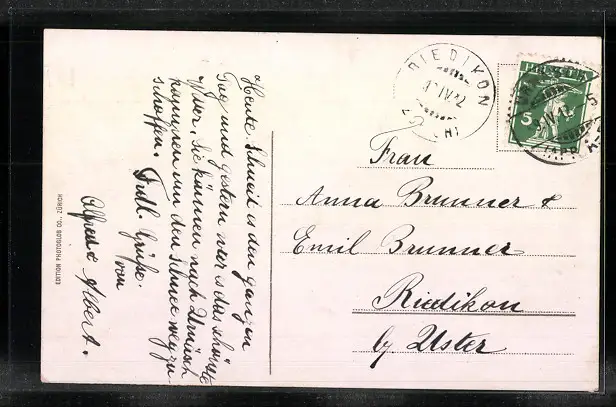 Heute Schneit es den ganzen
Tag und gestern war es das schönste
Wetter, Sie können nach Wunsch
kommen um den Schnee weg zu
schaffen. Frdl. Grüße.
von
Alfred & Albert.
EDITION PHOTOGLOB CO. ZÜRICH
RIEDIKON
IV.12
5
Frau
Anna Brunner &
Emil Brunner
Riedikon
by Uster